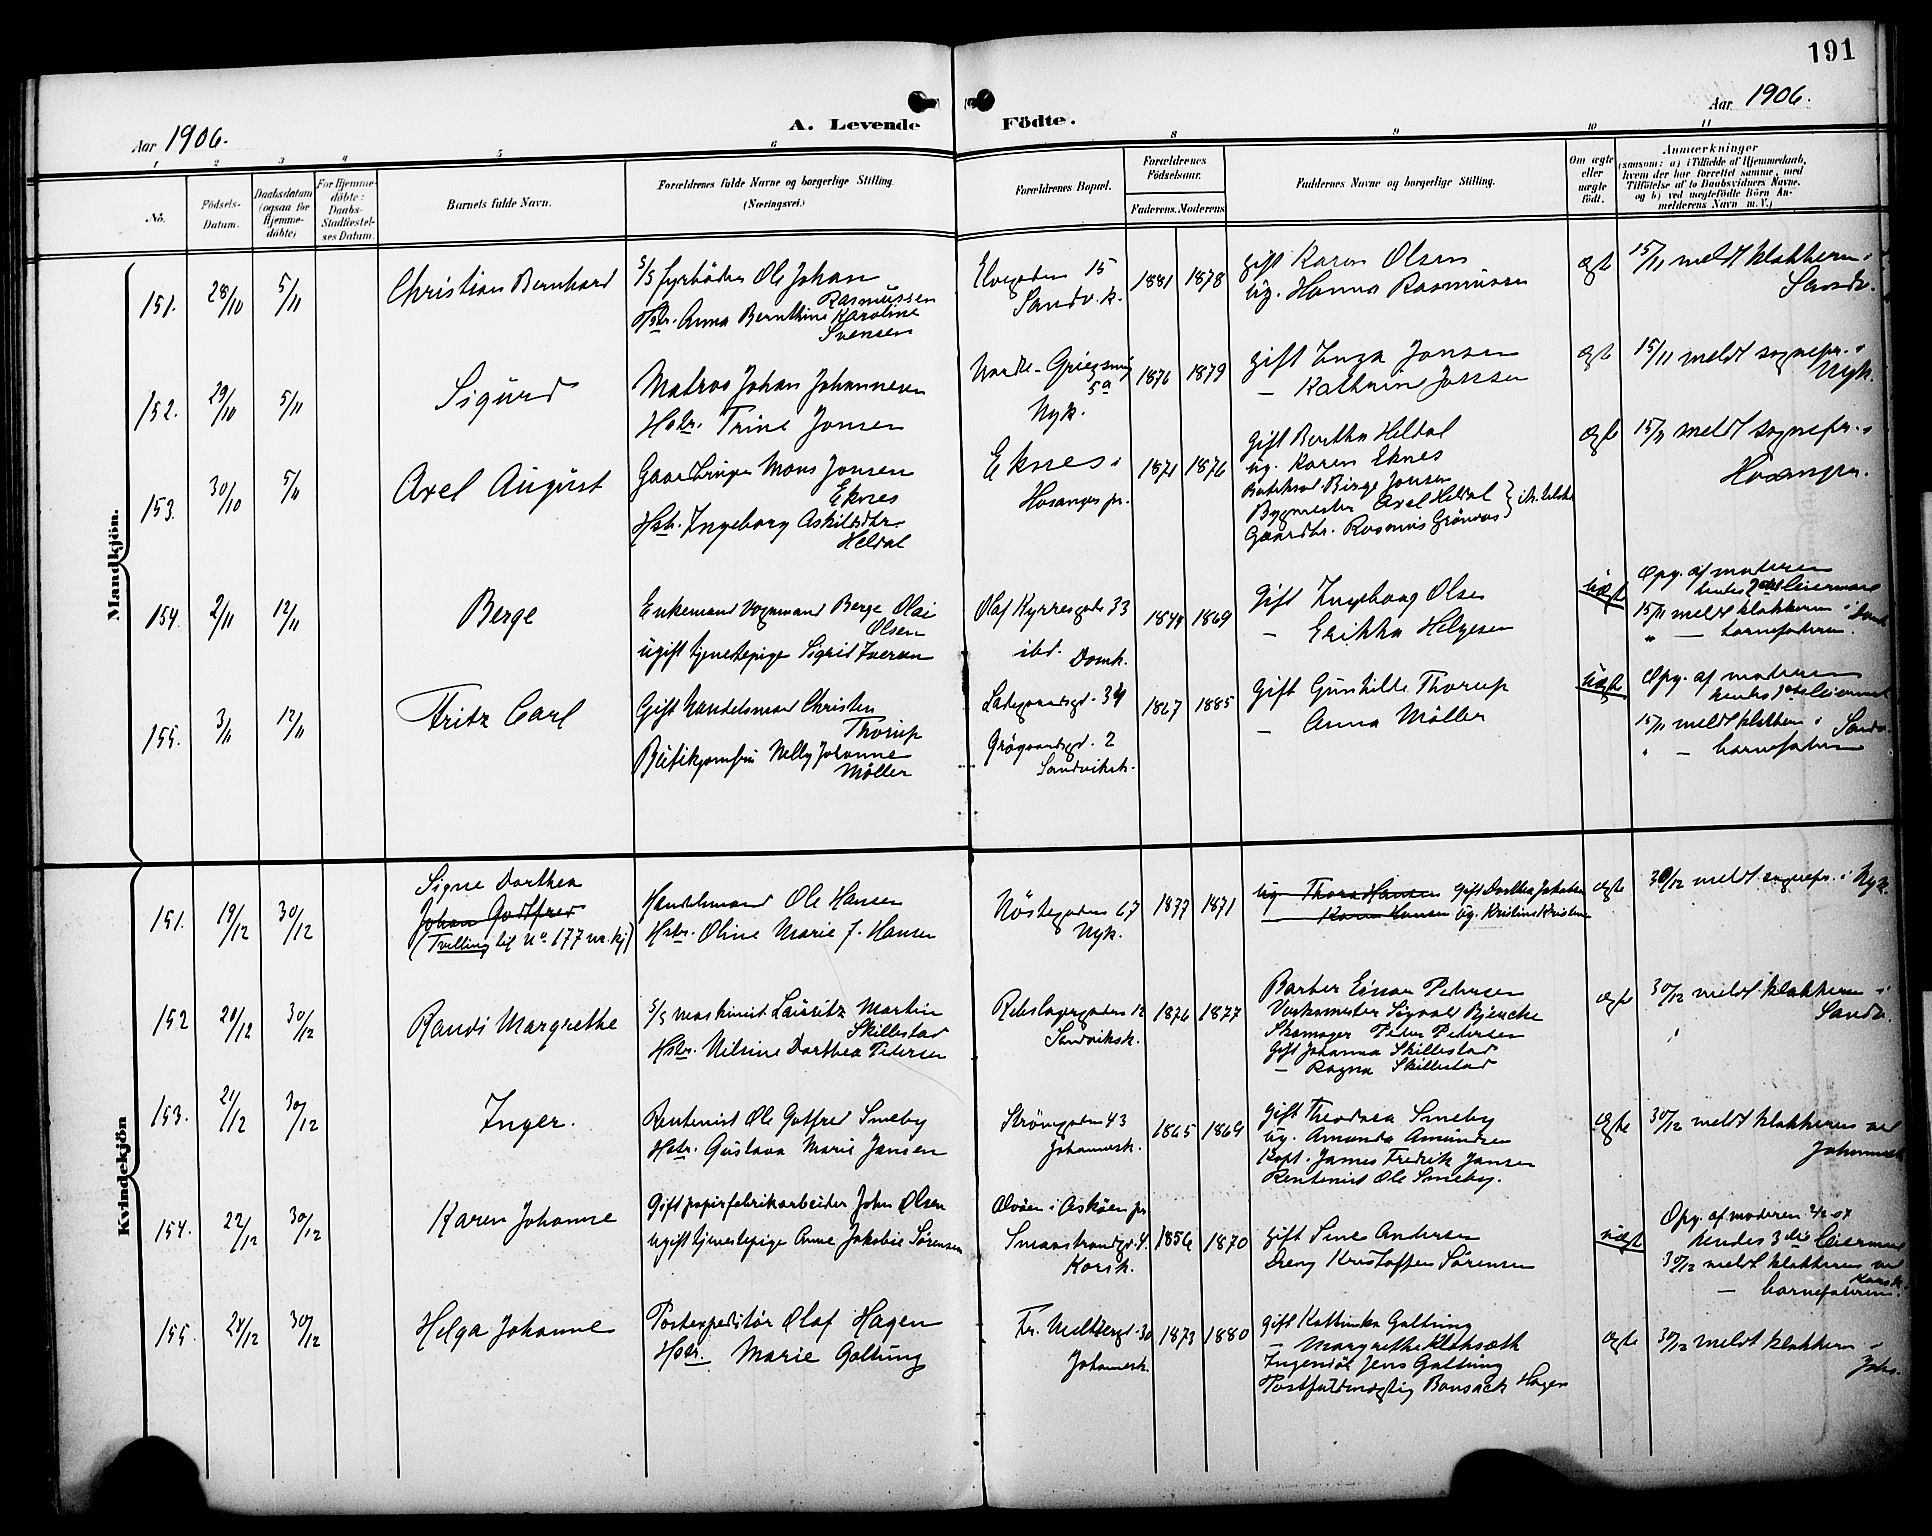 191
Aar 1906.
A. Levende Födte.
Aar 1906.
1 2 3 4 5 6 8 9 10 11
No.
Födsels-
Datum.
Daabsdatum
(ogsaa for
Hjemme-
döbte)
For Hjemme-
döbte:
Daabs-
Stadfæstel-
ses Datum.
Barnets fulde Navn.
Forældrenes fulde Navne og borgerlige Stilling.
(Næringsvei.)
Forældrenes Bopæl.
Forældrenes
Födselsaar.
Faderens. Moderens.
Faddernes Navne og borgerlige Stilling.
Om ægte
eller
uægte
födt.
Anmærkninger
(saasom: a) i Tilfælde af Hjemmedaab,
hvem der har forrettet samme, med
Tilföielse af to Daabsvidners Navne,
og b) ved uegtefödte Börn An-
melderens Navn m. V.)
Mandkjön.
151. 28/10 5/11 Christian Bernhard
S/S fyrböder Ole Johan
Rasmussen
Hstr. Anna Bernthine Karoline
Svensen
Elvegaden 15
Sandv.k.
1881 1878
gift Karen Olsen
ug. Hanna Rasmussen
ægte
15/11 meldt klokkeren i
Sandv.
152. 29/10 5/11 Sigurd
Matros Johan Johannesen
Hstr. Trine Jonsen
5a
Nyk.
1876 1879
gift Inga Jonsen
— Kathrine Jonsen
ægte
15/11 meldt sognepr. i
Nyk.
153. 30/10 5/11 Axel August
Gaardbruger Mons Jonsen
Eknes
Hstr. Ingeborg Askildsdtr.
Heldal
Eknes i
Hosanger pr.
1871 1876
gift Bertha Heldal
ug. Karen Eknes
Birge Jonsen
Bygmester Axel Heldal
Gaardbr. Rasmus Grönaas
ægte
15/11 meldt sognepr. i
Hosanger.
154. 2/11 12/11 Berge
Enkemand Vognmand Berge Olai
Olsen
ugift tjenestepige Sigrid Iversen
Olaf Kyrresgade 33
ibd. Domk.
1844 1869
Gift Ingeborg Olsen
— Erikka Helgesen
uægte
Opg. af moderen
hendes 2det leiermaal
15/11 meldt klokkeren i Domk
" — barnefaderen.
155. 3/11 12/11 Fritz Carl
Gift handelsmand Christen
Thorup
Butikjomfru Nelly Johanne
Möller
Ladegaardsgd. 34
2
Sandviksk.
1867 1885
Gift Gunhilde Thorup
— Anna Möller
uægte
Opg. af moderen
hendes 1ste leiermaal
15/11 meldt klokkeren i Sandv.
" — barnefaderen
Kvindekjön
151. 19/12 30/12
Signe Dorthea
Johan Godtfred
(Tvilling til No 177 m. kj)
Handelsmand Ole Hansen
Hstr. Oline Marie f. Hansen
Nöstegaden 67
Nyk.
1877 1871
ug. Thora Hansen gift Dorthea Jakobsen
— Karen Hansen ug. Kristine Kristensen
ægte
30/12 meldt sognepr. i Nyk.
152 20/12 30/12 Randi Margrethe
S/S maskinist Lauritz Martin
Skillestad
Hstr. Nilsine Dorthea Petersen
Rebslagergaden 12
Sandviksk.
1876 1877
Barber Einar Petersen
Verksmester Sigvald Bjercke
Skomager Peter Petersen
Gift Johanna Skillestad
— Ragna Skillestad
ægte
30/12 meldt klokkeren i
Sandv.
153. 21/12 30/12 Inger.
Rentenist Ole Gotfred Smeby
Hstr. Gustava Marie Jansen
Strömgaden 43
Johannesk.
1865 1869
Gift Theodora Smeby
ug. Amanda Amundsen
Kapt. James Fredrik Jansen
Rentenist Ole Smeby.
ægte
30/12 meldt klokkeren ved
Johannesk
154. 22/12 30/12 Karen Johanne
Gift papirfabrikarbeider John Olsen
ugift tjenestepige Anne Jakobie Sörensen
Alvöen i Asköen pr
Smaastrandgd. 4.
Korsk.
1856 1870
gift Sine Andersen
Dreng Kristoffer Sörensen
uægte
Opg. af moderen 2/1 07
hendes 3die leiermaal
30/12 meldt klokkeren ved
Korsk.
— barnefaderen.
155. 24/12 30/12 Helga Johanne
Postexpeditör Olaf Hagen
Hstr. Marie Galtung
Fr. Meltzersgd. 30
Johannesk.
1873 1880
gift Kathinka Galtung
— Margrethe Kloksæth
Ingeniör Jens Galtung
Postfuldmægtig Bonsach Hagen
ægte
30/12 meldt klokkeren i
Johs.